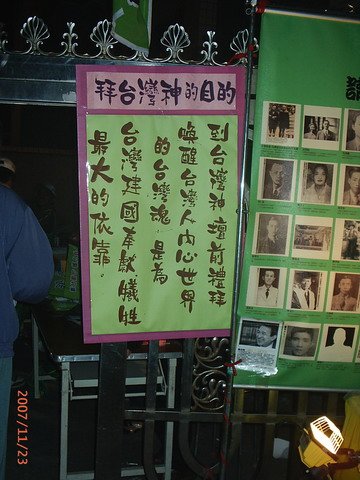 拜台灣神的目的
到台灣神壇前禮拜
喚醒台灣人內心世界
的台灣魂.是為
台灣建國奉獻犧牲
最大的依靠.
2007/11/23